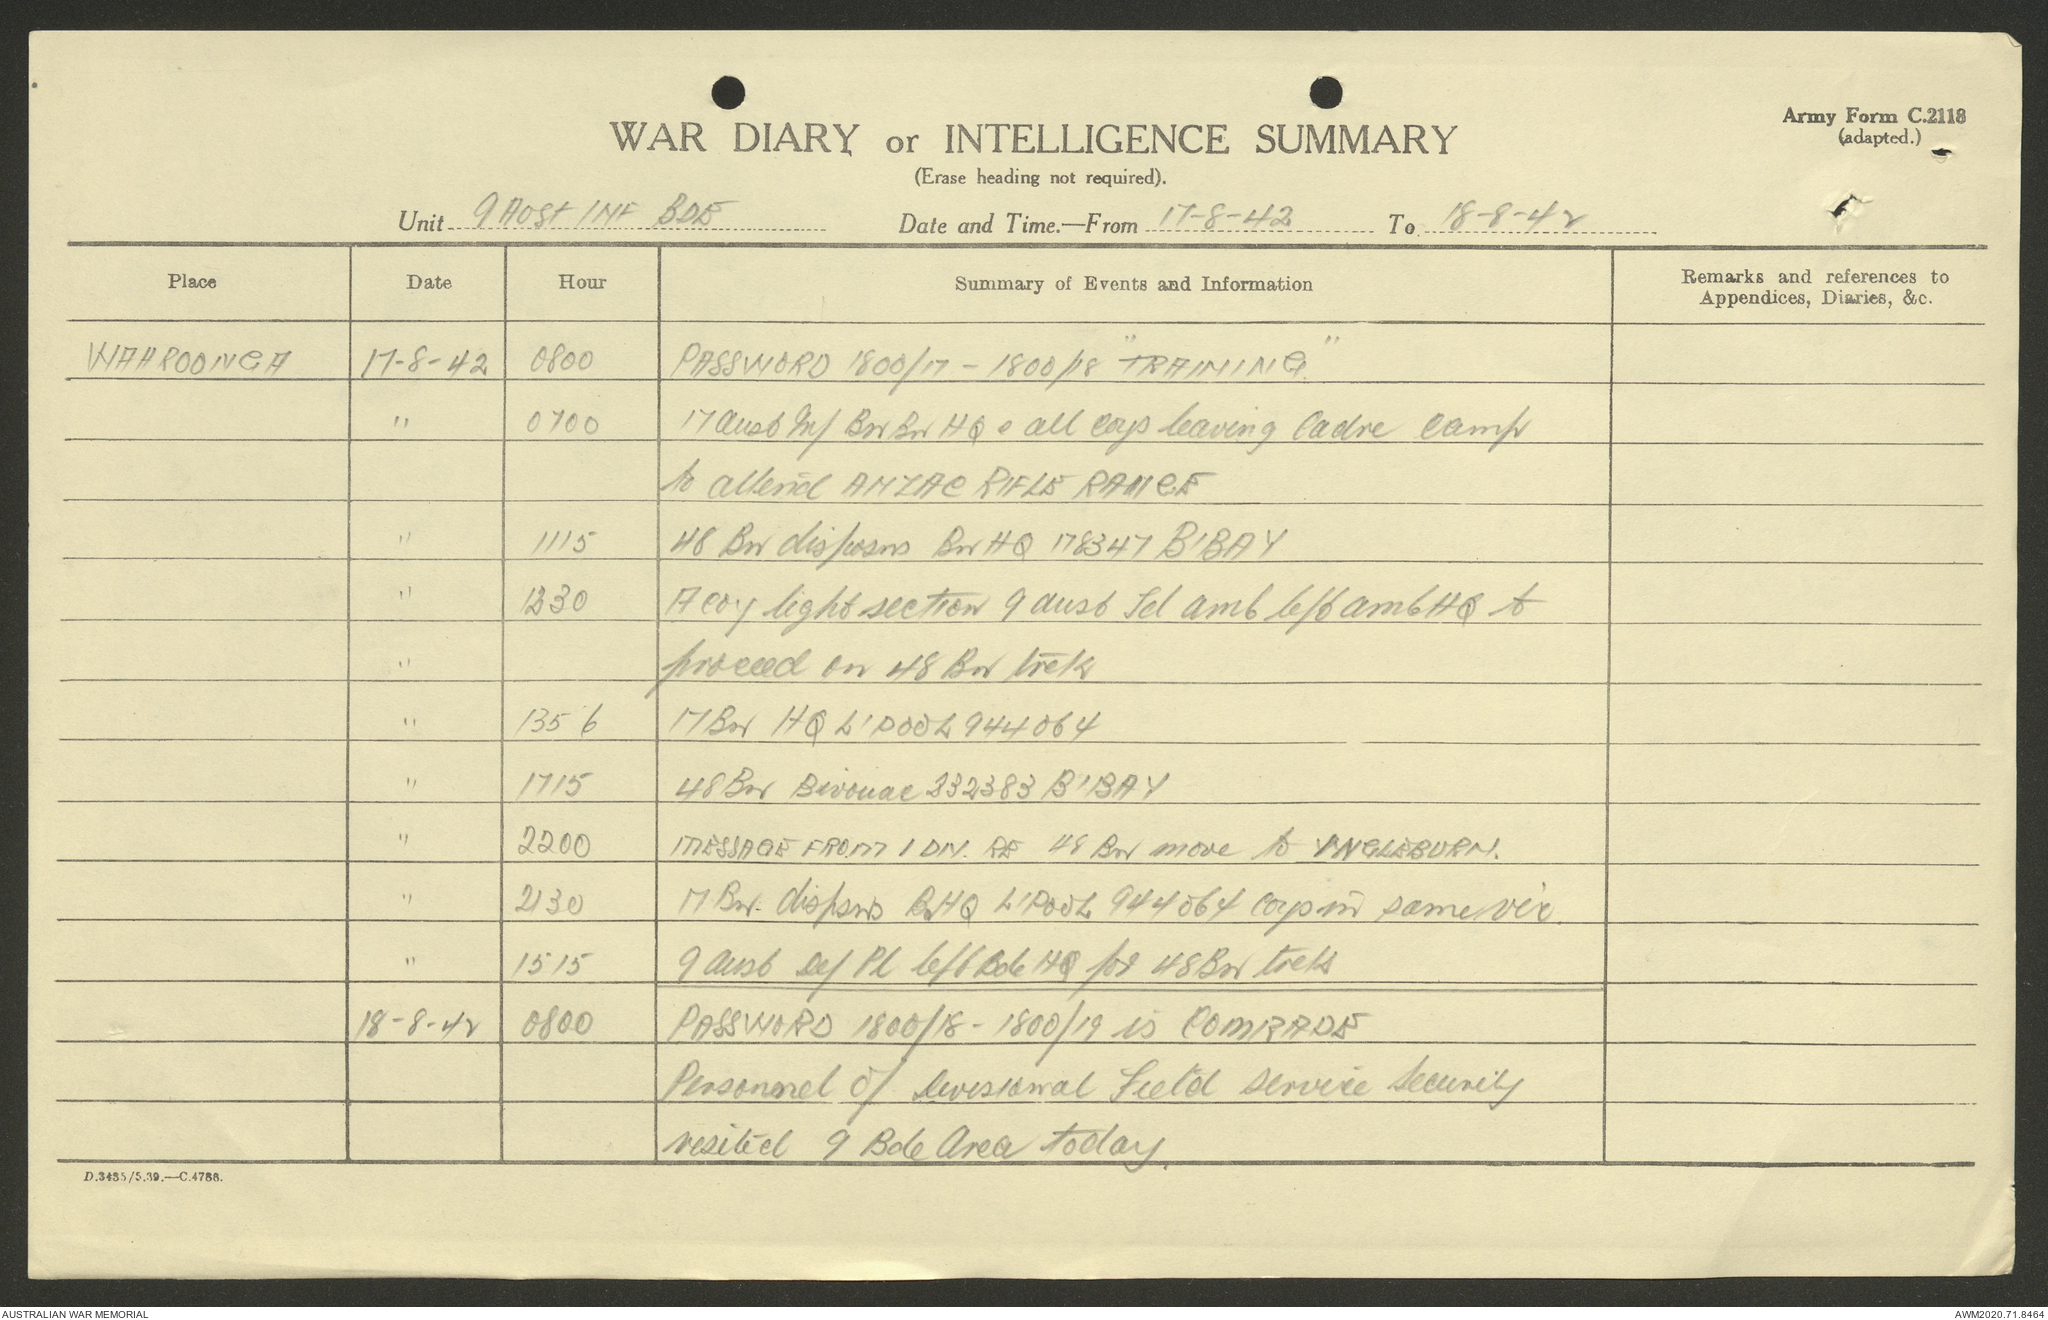 Army Form C.2118
(adapted.)
WAR DIARY or INTELLIGENCE SUMMARY
(Erase heading not required).
Unit 9 Aust INF BDE Date and Time.—From 17-8-42 To 18-8-42
Place Date Hour Summary of Events and Information Remarks and references to
Appendices, Diaries, &c.
WAHROONGA 17-8-42 0800 PASSWORD 1800/17 - 1800/18 "TRAINING"
" 0700 17 Aust Inf Bn Bn HQ & all coys leaving Cadre Camp
to attend ANZAC RIFLE RANGE
" 1115 48 Bn disposns Bn HQ 178347 B'BAY
" 1330 A coy light section 9 Aust Fd Amb left Amb HQ to
" proceed on 48 Bn trek
" 1356 17 Bn HQ L'POOL 944064
" 1715 48 Bn Bivouac 232383 B'BAY
" 2200 MESSAGE FROM 1 DIV. RE 48 Bn move to INGLEBURN.
" 2130 17 Bn. dispsns BHQ L'POOL 944064 Coys in same vic.
" 1515 9 Aust Def Pl left Bde HQ for 48 Bn trek
18-8-42 0800 PASSWORD 1800/18 - 1800/19 is COMRADE
Personnel of Divisional Field Service Security
visited 9 Bde Area today.
D.3435/5.39.—C.4788.
AUSTRALIAN WAR MEMORIAL AWM2020.71.8464